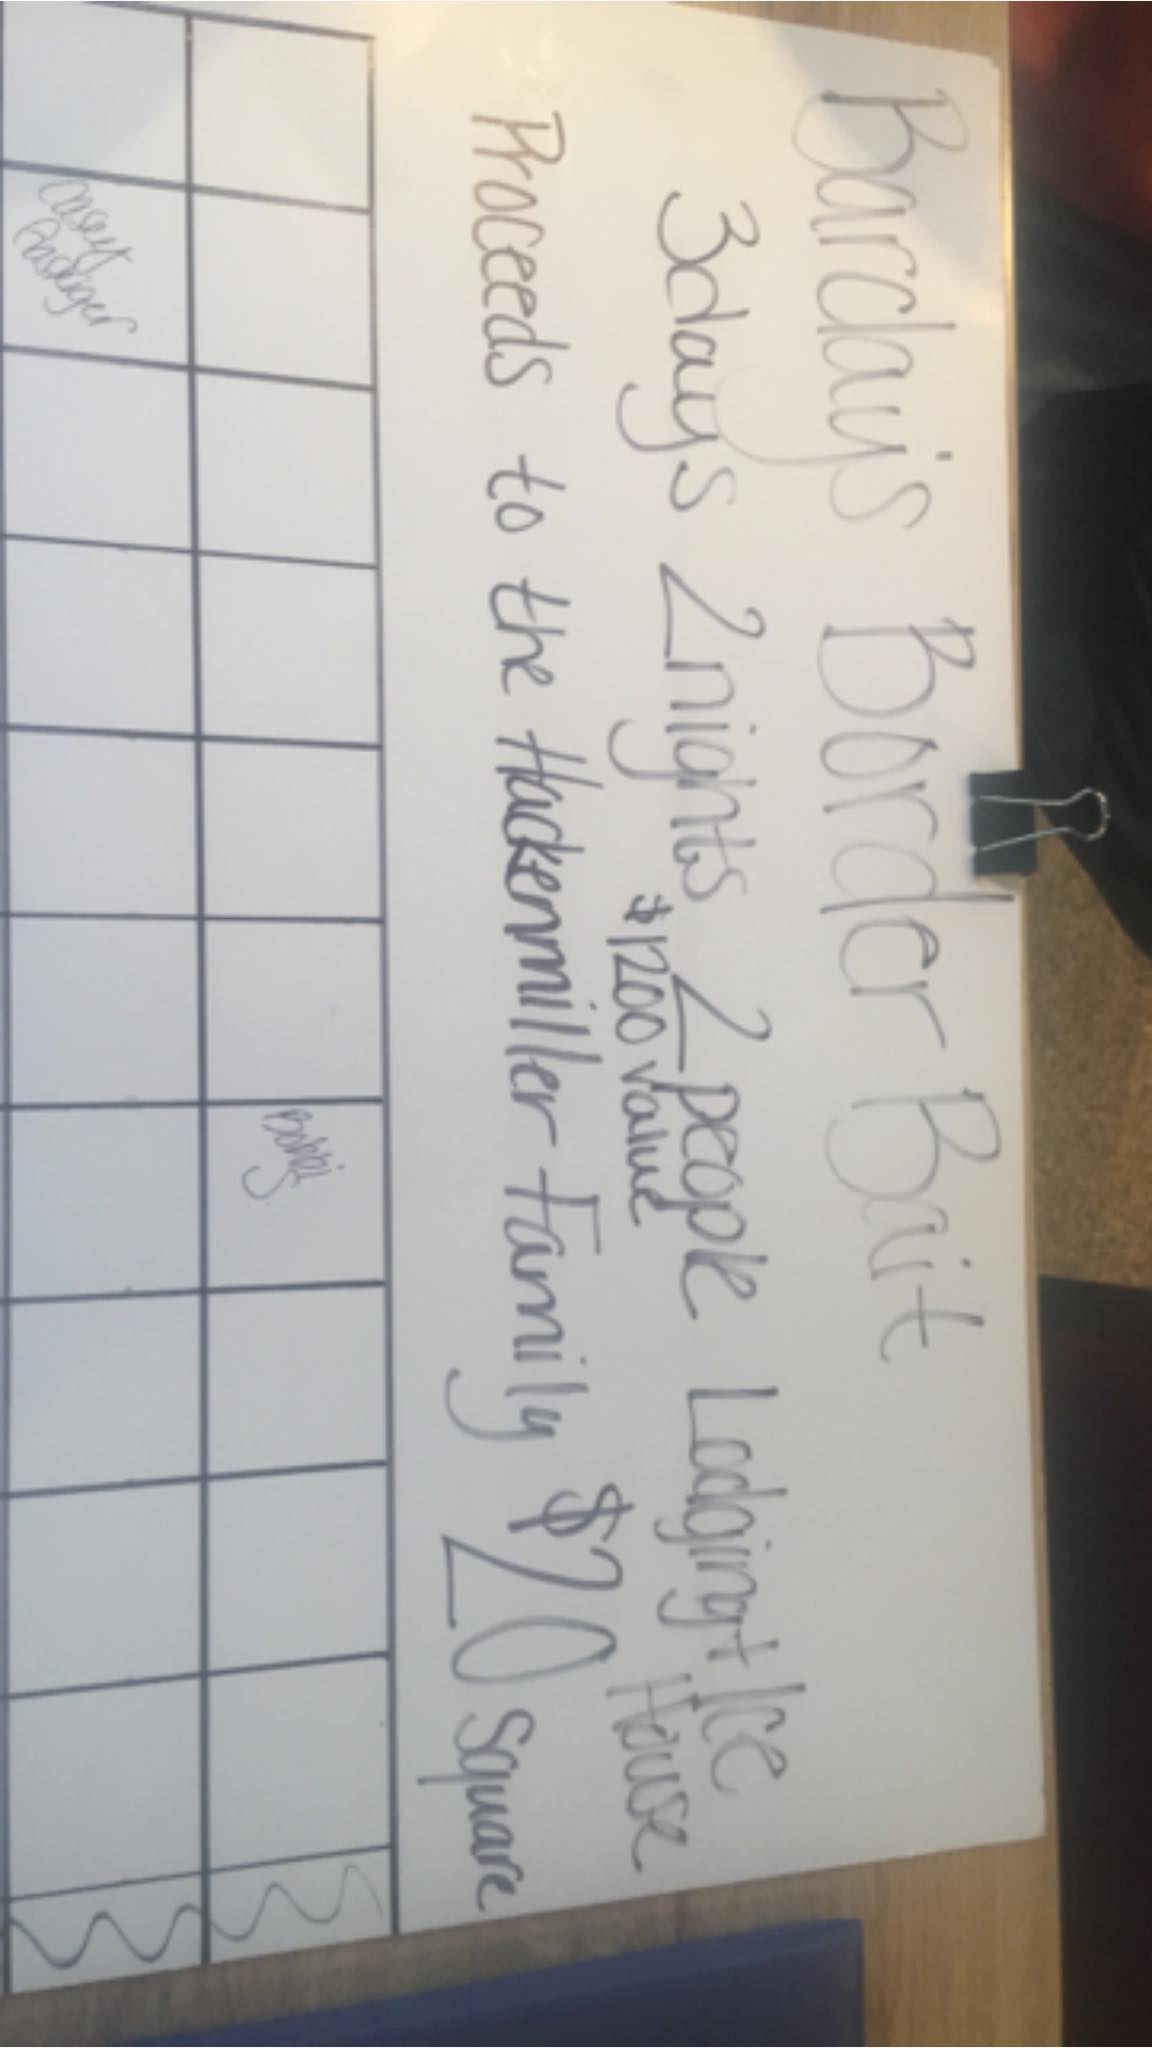 Barclay's Border Bait
3days 2nights 2people Lodging + Ice House
$1200 value
Proceeds to the Hackenmiller Family $20 square
Bobbi
Casey